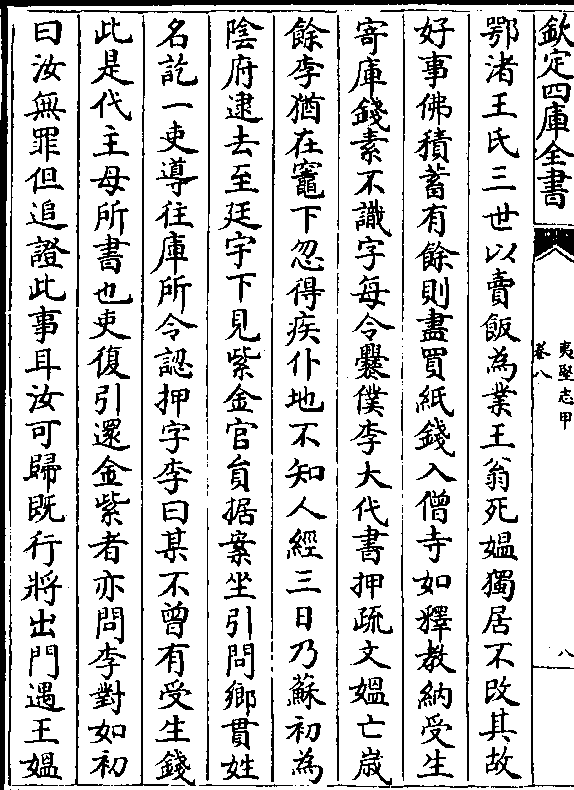 欽定四庫全書
夷堅志甲
卷八
八
鄂渚王氏三世以賣飯為業王翁死媪獨居不改其故
好事佛積蓄有餘則盡買紙錢入僧寺如釋教納受生
寄庫錢素不識字每令爨僕李大代書押疏文媪亡歳
餘李猶在竈下忽得疾仆地不知人經三日乃蘇初為
陰府逮去至廷宇下見紫金官貟据案坐引問鄉貫姓
名訖一吏導往庫所令認押字李曰某不曽有受生錢
此是代主母所書也吏復引還金紫者亦問李對如初
曰汝無罪但追證此事耳汝可歸既行將出門遇王媪